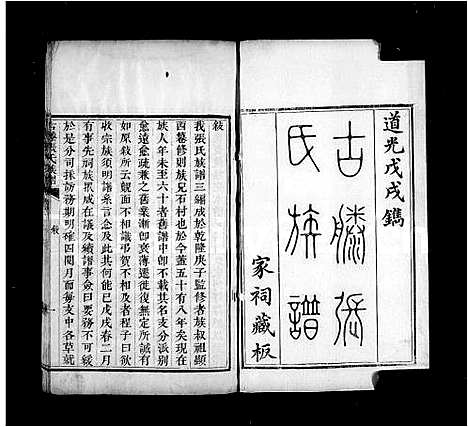 道光戊戌鐫
古滕張
氏族譜
家祠藏板
敍
我張氏族譜三編成於乾隆庚子監修者族叔祖顯
西纂修則族兄石村也於今蓋五十有八年矣現在
族人年未至六十者舊譜中不及載其名支分派別
愈遠愈疏兼之舊業漸卽衰薄遷徙復無定所誠有
如原敍所云覿面不相識弔賀不相及者程子曰欲
收宗族須明譜系言念及已戊戌春二月
有事先祠族衆咸在議及續譜事僉曰要務不可緩
於是分司採訪務期明確四閱月而每支中各草就
敍
一